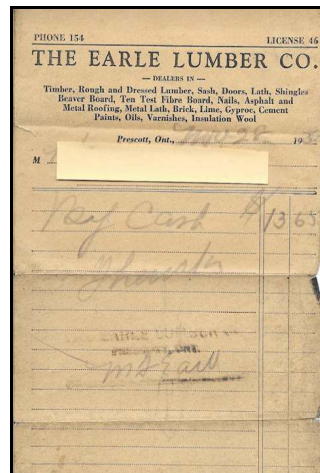 PHONE 154 LICENSE 46
THE EARLE LUMBER CO.
— DEALERS IN —
Timber, Rough and Dressed Lumber, Sash, Doors, Lath, Shingles
Beaver Board, Ten Test Fibre Board, Nails, Asphalt and
Metal Roofing, Metal Lath, Brick, Lime, Gyproc, Cement
Paints, Oils, Varnishes, Insulation Wool
Prescott, Ont., 28 19
M
By Cash $13 65
EARLE LUMBER
ONT.